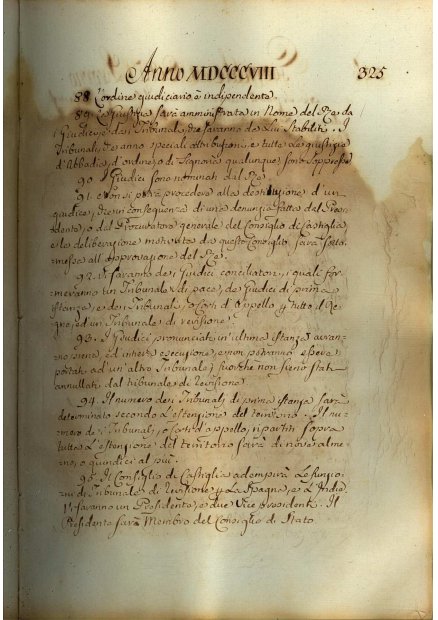 Anno MDCCCVIII 325
88. L'ordine giudiciario è independente.
89. La Giustizia sarà amministrata in Nome del Re da
i Giudici, e dai Tribunali, che saranno da Lui Stabiliti. I
Tribunali, che anno speciali attribuzioni, e tutte le giustizie
d'Abbadia, d'ordine, o di Signoria qualunque sono soppresse
90. I Giudici sono nominati dal Re.
91. Non si potrà procedere alla destituzione d'un
giudice, che in conseguenza di una denunzia fatta dal Presi
dente, o dal Procuratore generale del Consiglio di Castiglia,
e la deliberazione motivata da questo Consiglio sarà sotto.
messa all'approvazione del Re
92. Vi saranno dei Giudici conciliatori, i quali for
meranno un Tribunale di pace, de Giudici di prima
istanza, e dei Tribunali, o Corti d'Appello p tutto il Re
gno, ed un Tribunale di revisione.
93. I Giudici pronunciati in ultima istanza avran-
no piena, ed intera esecuzione, e non potranno essere
portati ad un'altro Tribunale, fuorche non sieno stati
annullati dal tribunale di revisione
94. Il numero dei Tribunali di prima istanza sarà
determinato secondo l'estensione del territorio. Il nu-
mero dei Tribunali, o Corti d'appello, ripartiti sopra
tutta l'estensione del territorio sarà di nove alme-
no, o quindici al più.
95. Il Consiglio di Castiglia adempirà le funzio-
ni di Tribunale di revisione p la Spagna, e l'Indie.
Vi saranno un Presidente, e due Vice Presidenti. Il
Presidente sarà Membro del Consiglio di Stato.